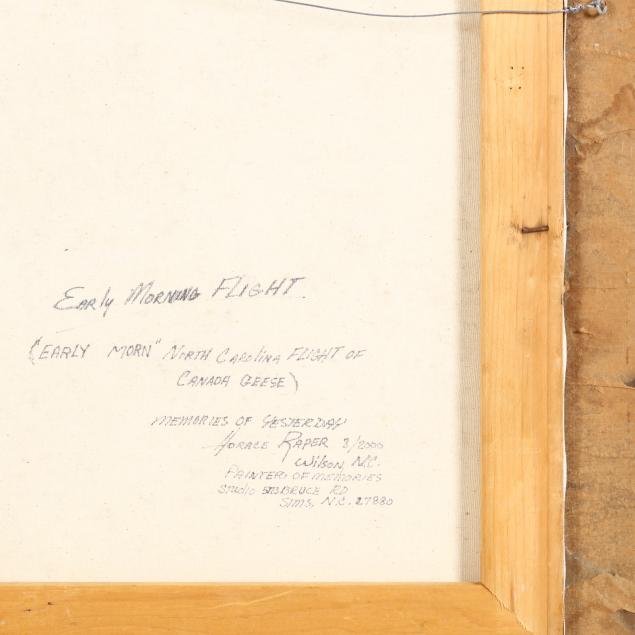 Early Morning Flight.
("EARLY MORN" North Carolina FLIGHT OF
CANADA GEESE)
MEMORIES OF YESTERDAY
HORACE RAPER 3/2000
Wilson, N.C.
PAINTER OF MEMORIES
Studio BRUCE RD
SIMS, N.C. 27880